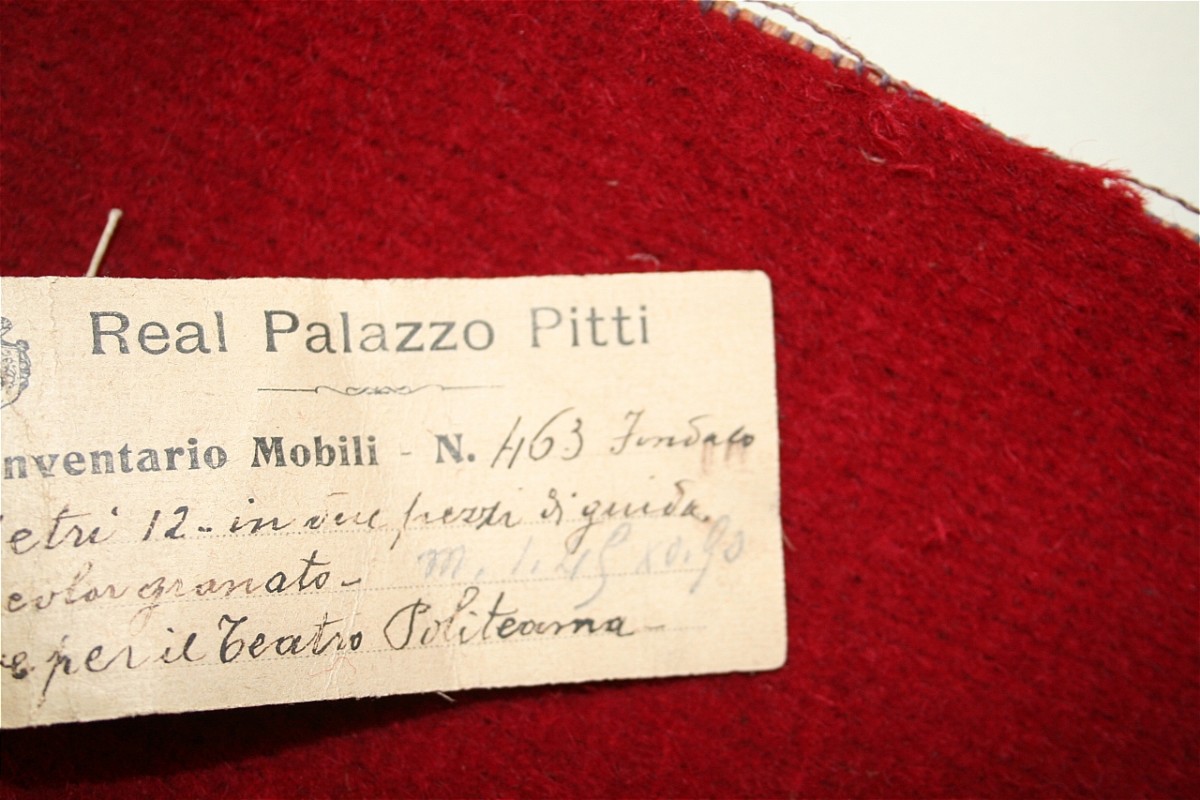 Real Palazzo Pitti
nventario Mobili - N. 463
etri 12 - in due pezzi di guida
color granato -
m. 1.45 x 0.90
e per il Teatro Politeama -